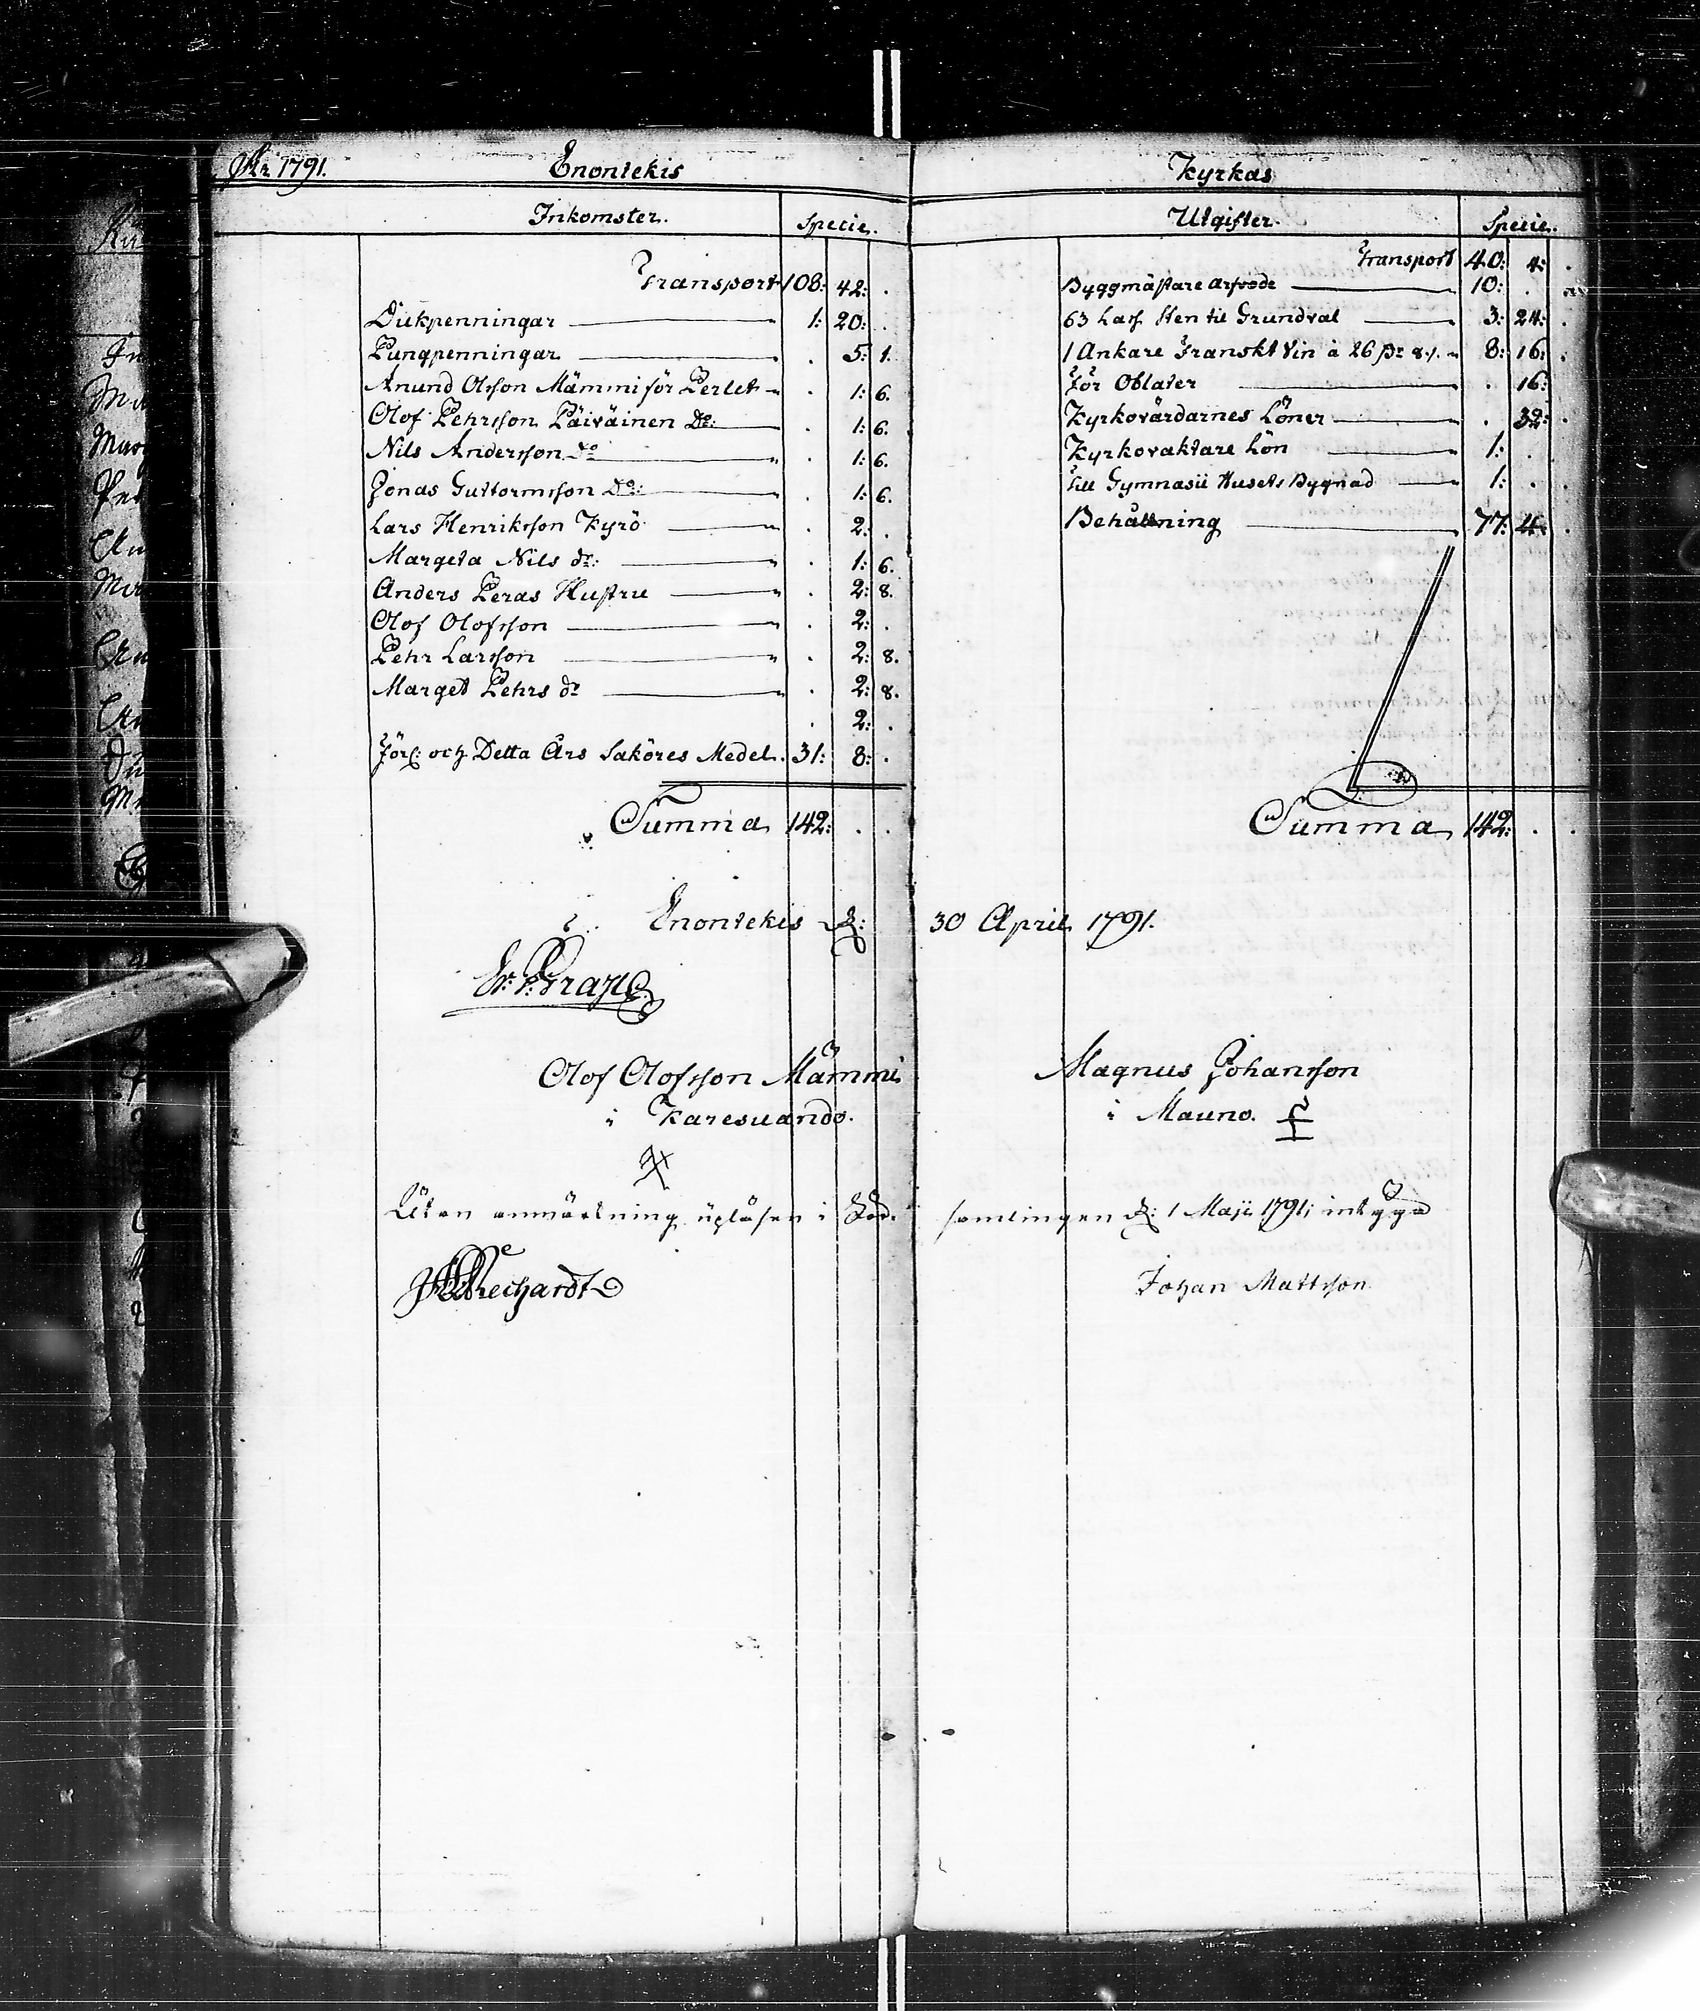 År 1791. Enontekis
Inkomster. Specie.
Transport 108: 42: .
Diskpenningar 1: 20: .
Pungpenningar . 5: 1.
Anund Olsson Mämmi för Perlet . 1: 6.
Olof Pehrsson Päiväinen Do: . 1: 6.
Nils Andersson do . 1: 6.
Jonas Guttormsson Do: . 1: 6.
Lars Henriksson Kyrö . 2: .
Margeta Nils dr: . 1: 6.
Anders Peras Hustru . 2: 8.
Olof Olofsson . 2: .
Pehr Larsson . 2: 8.
Marget Pehrs dr . 2: 8.
. 2: .
Förl: och Detta Års Saköres Medel. 31: 8: .
Summa 142: . .
Kyrkas
Utgifter. Specie.
Transport 40: 4: .
Byggmästare arfvode 10: . .
63 Lass Sten til Grundval 3: 24: .
1 Ankare Franskt Vin à 26 8: 16: .
För Oblater . 16:
Kyrkovärdarnes Löner . 32: .
Kyrkovaktare Lön 1: . .
till Gymnasii Husets Bygnad 1: . .
Behållning 77: 4: .
Summa 142: . .
Enontekis d: 30 April 1791.
Er. Grape
Olof Olofsson Mämmi
i Karesuando.
Magnus Johansson
i Mauno.
Utan anmärkning upläsen i Sockne samlingen d: 1 Maji 1791; intyga
Johan Mattsson